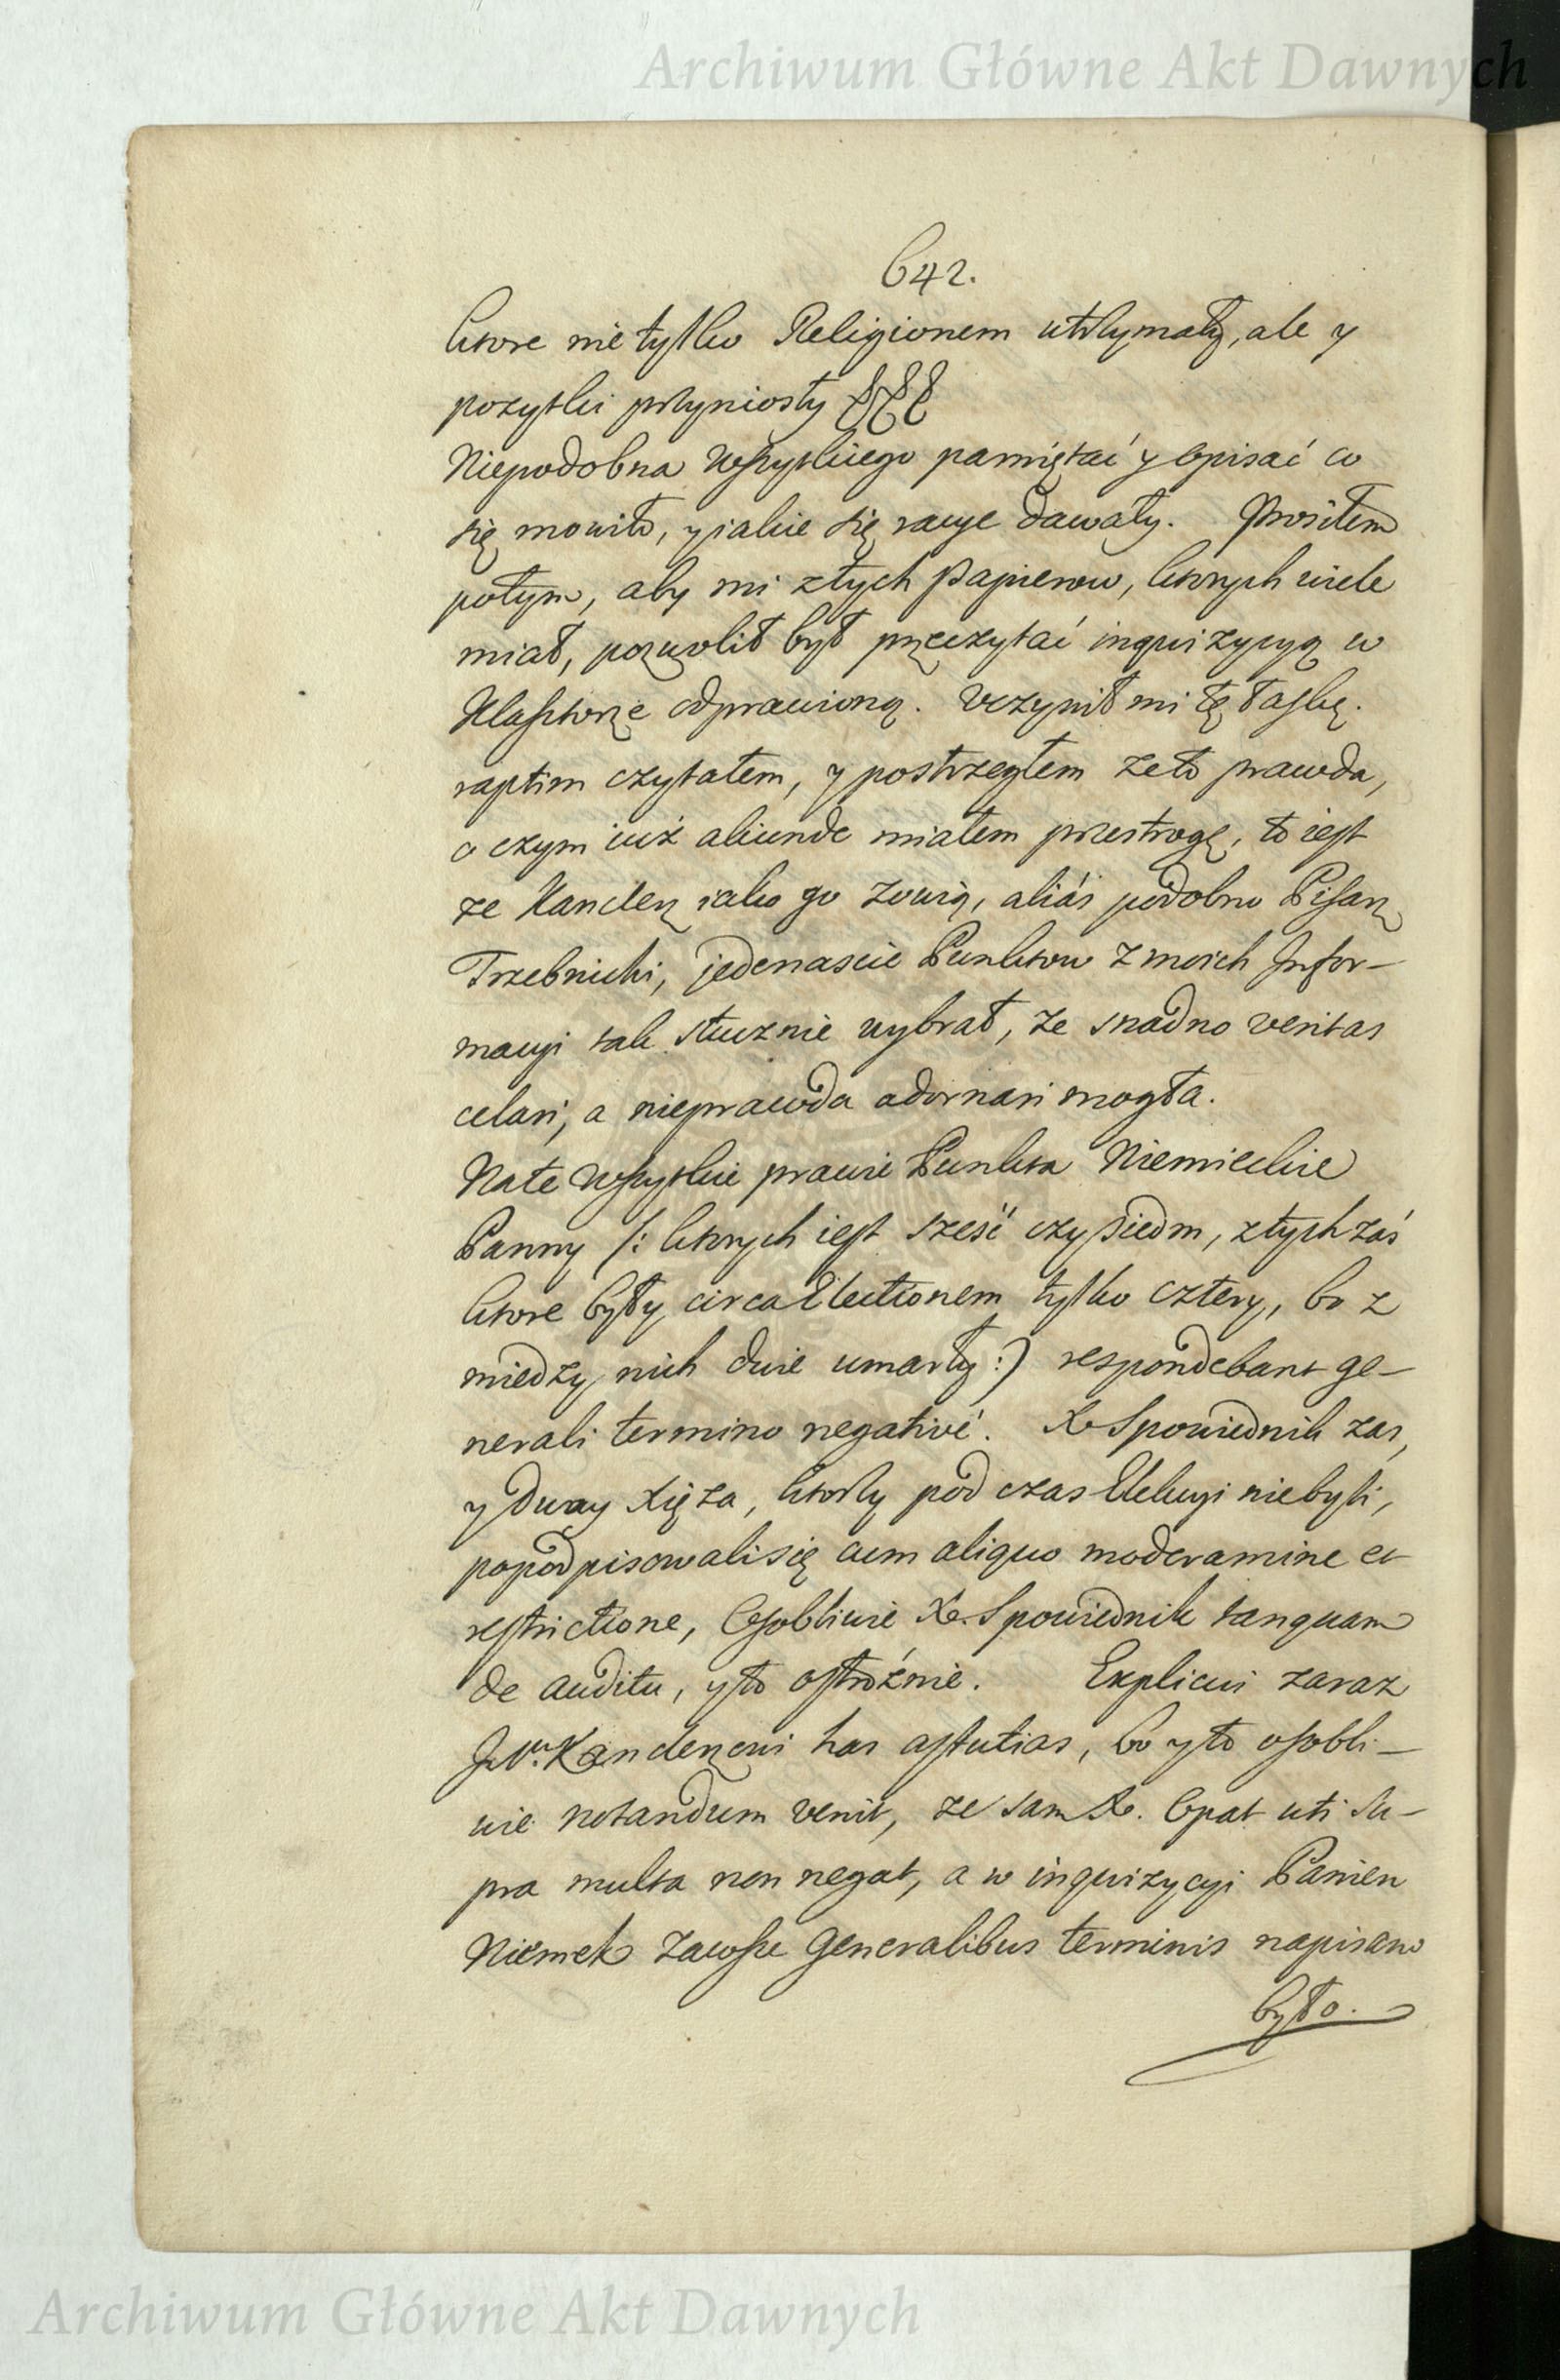 Archiwum Główne Akt Dawnych
642.
ktore nie tylko Religionem utrzymały, ale y
pozytki przyniosły &&&
Niepodobna wszytkiego pamiętać y opisać co
się mowiło, y iakie się racye dawały. Prosiłem
potym, aby mi z tych Papierow, ktorych wiele
miał, pozwolił był przeczytać inquizycyą w
Klasztorze odprawioną. Uczynił mi tę łaskę.
raptim czytałem, y postrzegłem ze to prawda,
o czym iuż aliunde miałem przestrogę, to iest
ze Kanclerz iako go zowią, aliás podobno Pisarz
Trzebnicki, jedenascie Punktow z moich Infor-
macyi tak sztucznie wybrał, ze snadno veritas
celari, a nieprawda adornari mogła.
Na te wszytkie prawie Punkta Niemieckie
Panny /: ktorych iest sześć czy siedm, z tych zaś
ktore były circa Electionem tylko cztery, bo z
miedzy nich dwie umarły :) respondebant ge-
nerali termino negativé. X. Spowiednik zas,
y dway Xięza, ktorzy pod czas Elekcyi niebyli,
popodpisowali się cum aliquo moderamine et
restrictione, Osobliwie X. Spowiednik tanquam
de auditu, y to ostrożnie. Explicui zaraz
Kanclerzowi has astutias, bo y to osobli-
wie notandum venit, ze sam X. Opat uti su-
pra multa non negat, a w inquizycyi Panien
Niemek zawsze generalibus terminis napisano
było.
Archiwum Główne Akt Dawnych